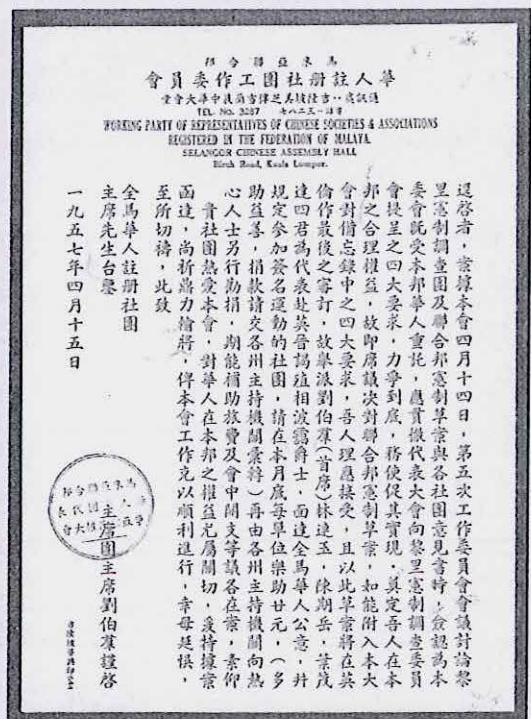 馬來亞聯合邦
華人註册社團工作委員會
通訊處：吉隆坡美芝律吉蘭莪中華大會堂
電話：三二八七
TEL No. 3287
WORKING PARTY OF REPRESENTATIVES OF CHINESE SOCIETIES & ASSOCIATIONS
REGISTERED IN THE FEDERATION OF MALAYA.
SELANGOR CHINESE ASSEMBLY HALL
Birch Road, Kuala Lumpur.
逕啓者，案據本會四月十四日，第五次工作委員會會議討論黎
里憲制調查團及聯合邦憲制草案與各社團意見書時，僉認為本
委會既受本邦華人重託，應貫徹代表大會向黎里憲制調查委員
會提呈之四大要求，力爭到底，務使促其實現，奠定吾人在本
邦之合理權益，故即席議決對聯合邦憲制草案，如能附入本大
會對備忘錄中之四大要求，吾人理應接受，且以此草案將在英
倫作最後之審訂，故舉派劉伯羣(首席)林連玉，陳期岳，葉茂
達四君為代表赴英晉謁殖相波靄爵士，面達全馬華人公意，并
規定參加簽名運動的社團，請在本月底每單位樂助廿元，(多
助益善，捐款請交各州主持機關彙轉)再由各州主持機關向熱
心人士另行勸捐，期能補助旅費及會中開支等議各在案，素仰
貴社團熱愛本會，對華人在本邦之權益尤屬關切，爰特據案
函達，尚祈鼎力輸將，俾本會工作克以順利進行，幸毋延悞，
至所切禱，此致
全馬華人註册社團
主席先生台鑒
主席團主席劉伯羣謹啓
一九五七年四月十五日
馬來亞聯合邦